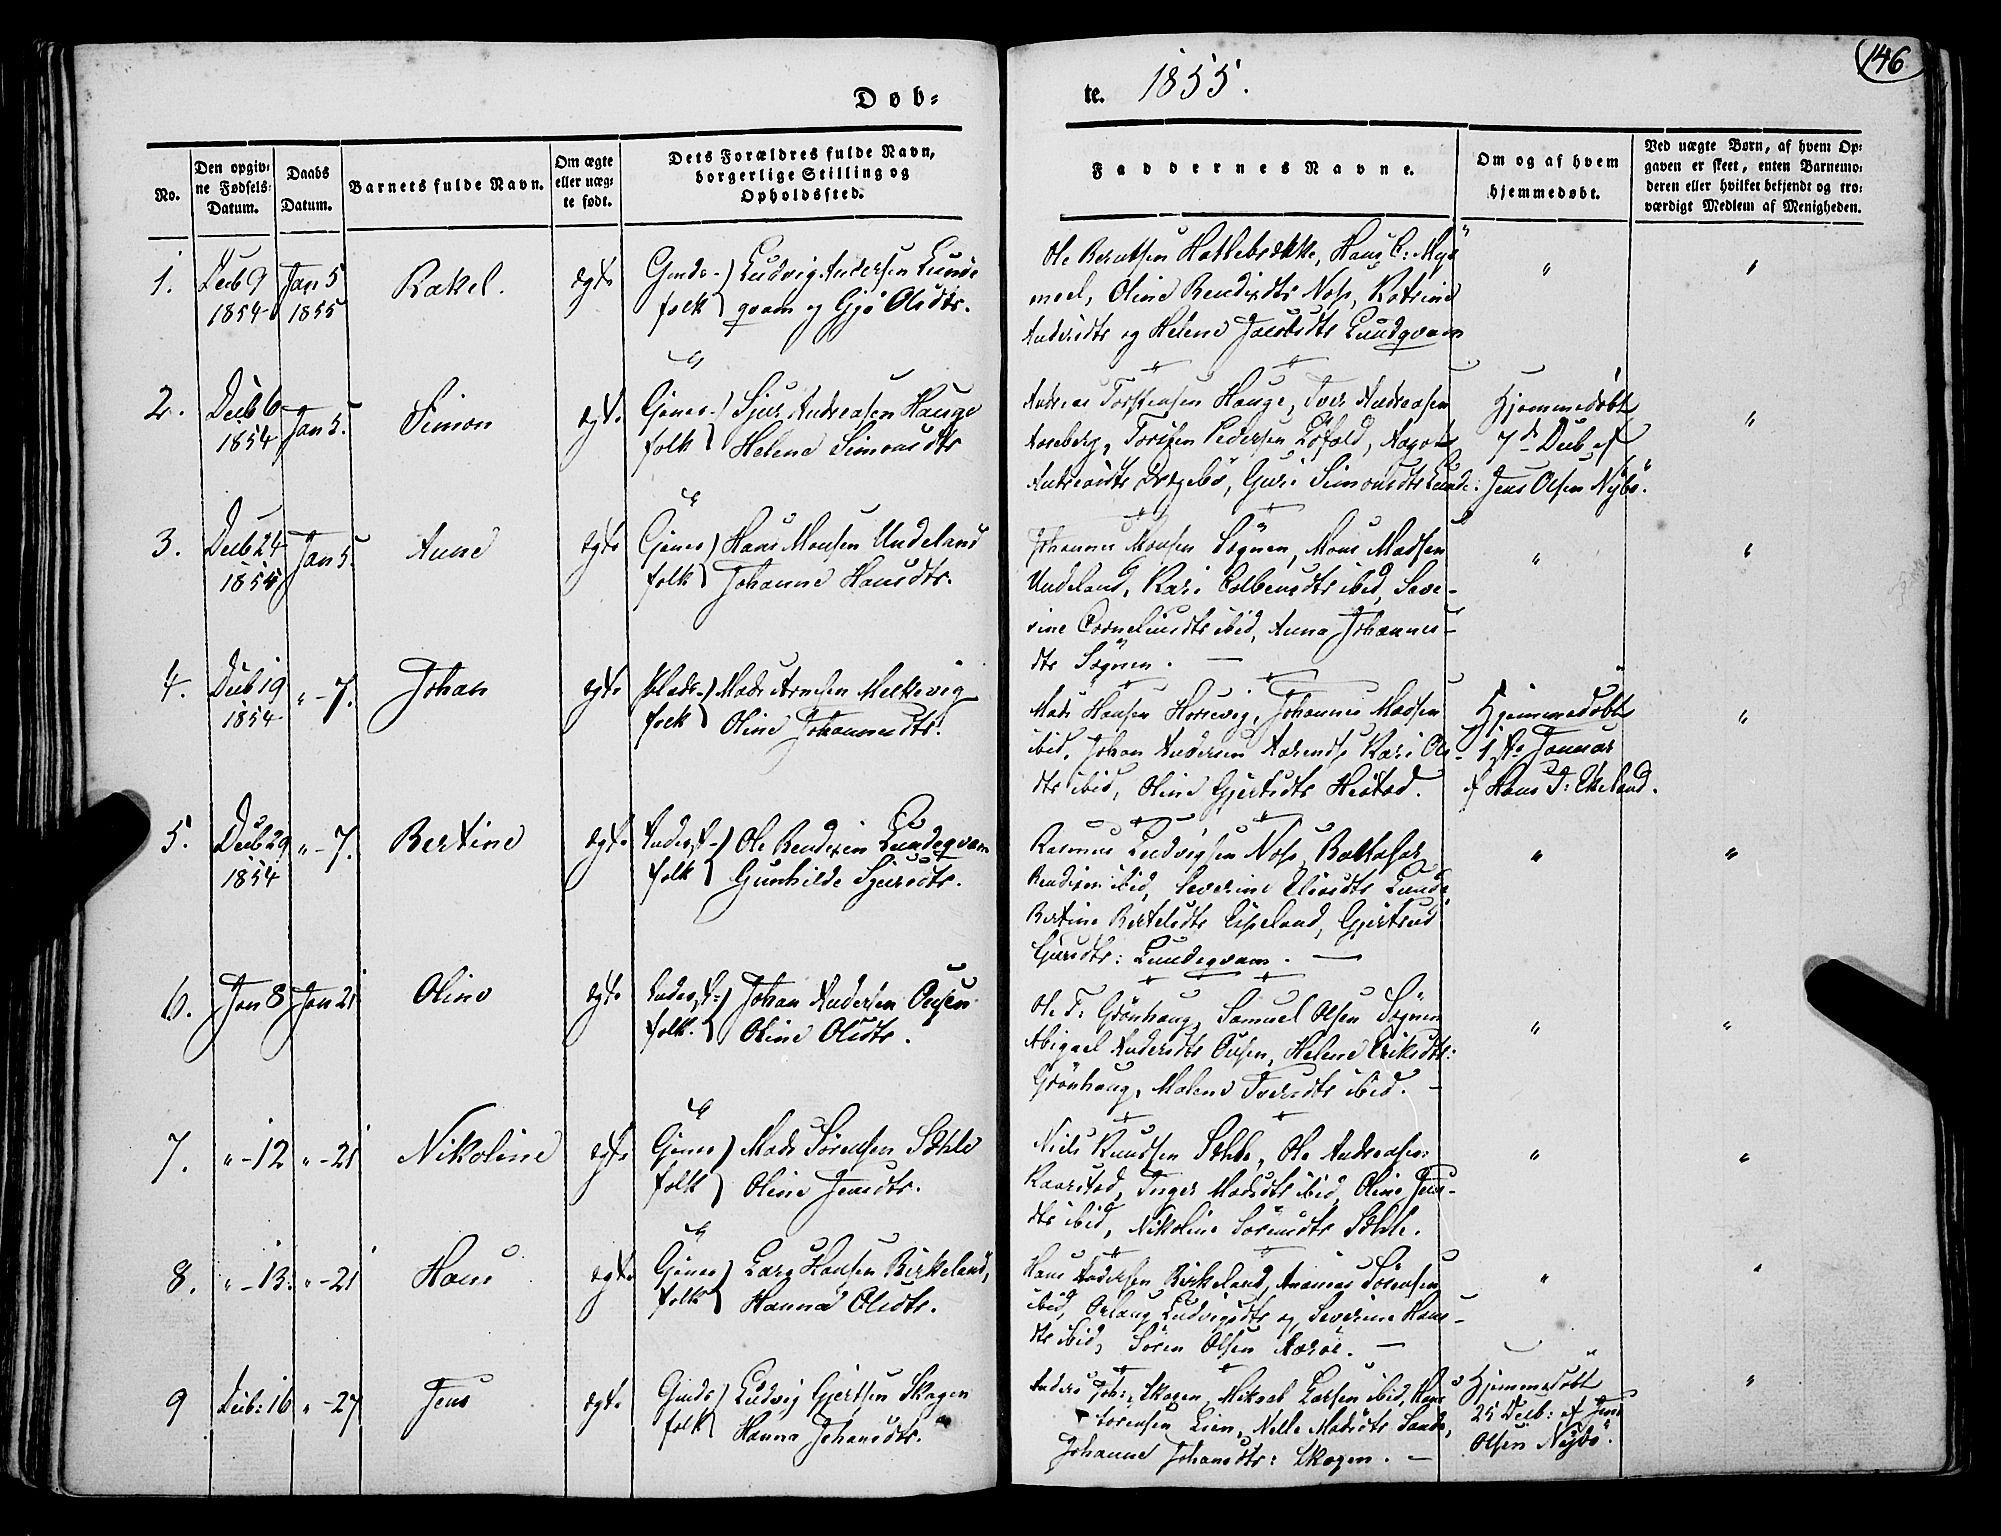 146
Døb-
te. 1855.
No.
Den opgiv-
ne Fødsels-
Datum.
Daabs
Datum.
Barnets fulde Navn.
Om ægte
eller uæg-
te født.
Dets Forældres fulde Navn,
borgerlige Stilling og
Opholdssted.
Faddernes Navne.
Om og af hvem
hjemmedøbt.
Ved uægte Børn, af hvem Op-
gaven er skeet, enten Barnemo-
deren eller hvilket bekjendt og tro-
værdigt Medlem af Menigheden.
1. Decb 9 Jan 5 Rakel. ægte Ludvig Andersen Lunde
1854 1855 folk qvam og Gjø Olsdtr.
Ole Berntsen Hatlebrække, Hans C: Myk-
meel, Oline Bendixdtr Nos, Katrine
Andersdtr og Helene Jacobsdtr Lundqvam
"
"
2. Decb 6 Jan 5. Simon ægt. Gjenes- Sjur Andreasen Hauge
1854 folk Helene Simonsdtr
Andreas Torstensen Hauge, Iver Andreasen
Pedersen Løfald,
Drægebø, Guri Simonsdtr Lunde.
Hjemmedøbt
7de Decb af
Jens Olsen Nybø.
"
3. Decb 24 Jan 5. Anne ægte Gjenes Hans Monsen Undeland
1854 folk Johanne Hansdtr.
Johannes Monsen Søgnen, Mons Madsen
Undeland, Kari Colbensdtr ibid, Seve-
rine Corneliusdtr ibid, Anna Johannes-
dtr Søgnen.
"
"
4. Decb 19 " - 7. Johan ægte Plads- Mads Arnesen Melkevig
1854 folk Oline Johannesdtr.
Mads Hansen Horsevig, Johannes Madsen
ibid, Johan Andersen Kari Ols-
dtr ibid, Oline Gjertsdtr Heistad.
Hjemmedøbt
1ste Januar
af Hans D: Ekeland.
"
5. Decb 29 " - 7. Bertine ægt. Ole Bendixen Lundeqvam
1854 folk Gunhilde Sjursdtr.
Rasmus Ludvigsen Nos, Baltasar
Bendixen ibid, Severine Eliasdtr Lunde
Bertine Bertelsdtr Espeland, Gjertrud
Gursdtr: Lundeqvam.
"
"
6. Jan 8 Jan 21 Oline ægte Johan Andersen Ousen
folk. Oline Olsdtr.
Ole T: Grønhaug, Samuel Olsen Søgnen
Abigael Andersdtr Ousen, Helene Eriksdtr:
Grønhaug, Malene Iversdtr ibid.
"
"
7. " - 12 " - 21 Nikoline ægte Gjenes Mads Sørensen Sæhle
folk Oline Jensdtr.
Niels Knudsen Sæhle, Ole Andreasen
Kaarstad, Inger Madsdtr ibid, Oline Jens-
dtr ibid, Nikoline Sørensdtr Sæhle.
"
"
8. " - 13. " - 21 Hans ægte Gjenes Lars Hansen Birkeland,
folk Hanna Olsdtr.
Hans Andersen Birkeland, Ananias Sørensen
ibid, Orlaug Ludvigsdtr og Severine Hans-
dtr ibid, Søren Olsen Aarøe.
"
"
9 Decb: 16 " - 27 Jens ægt. Ludvig Gjertsen Skogen
folk Hanna Johansdtr.
Anders Joh: Skogen, Mikael Larsen ibid, Hans
Sørensen Lien, Nelle Madsdtr Sande,
Johanne Johansdtr: Skogen.
Hjemmedøbt
25 Decb: af Jens
Olsen Nybø.
"